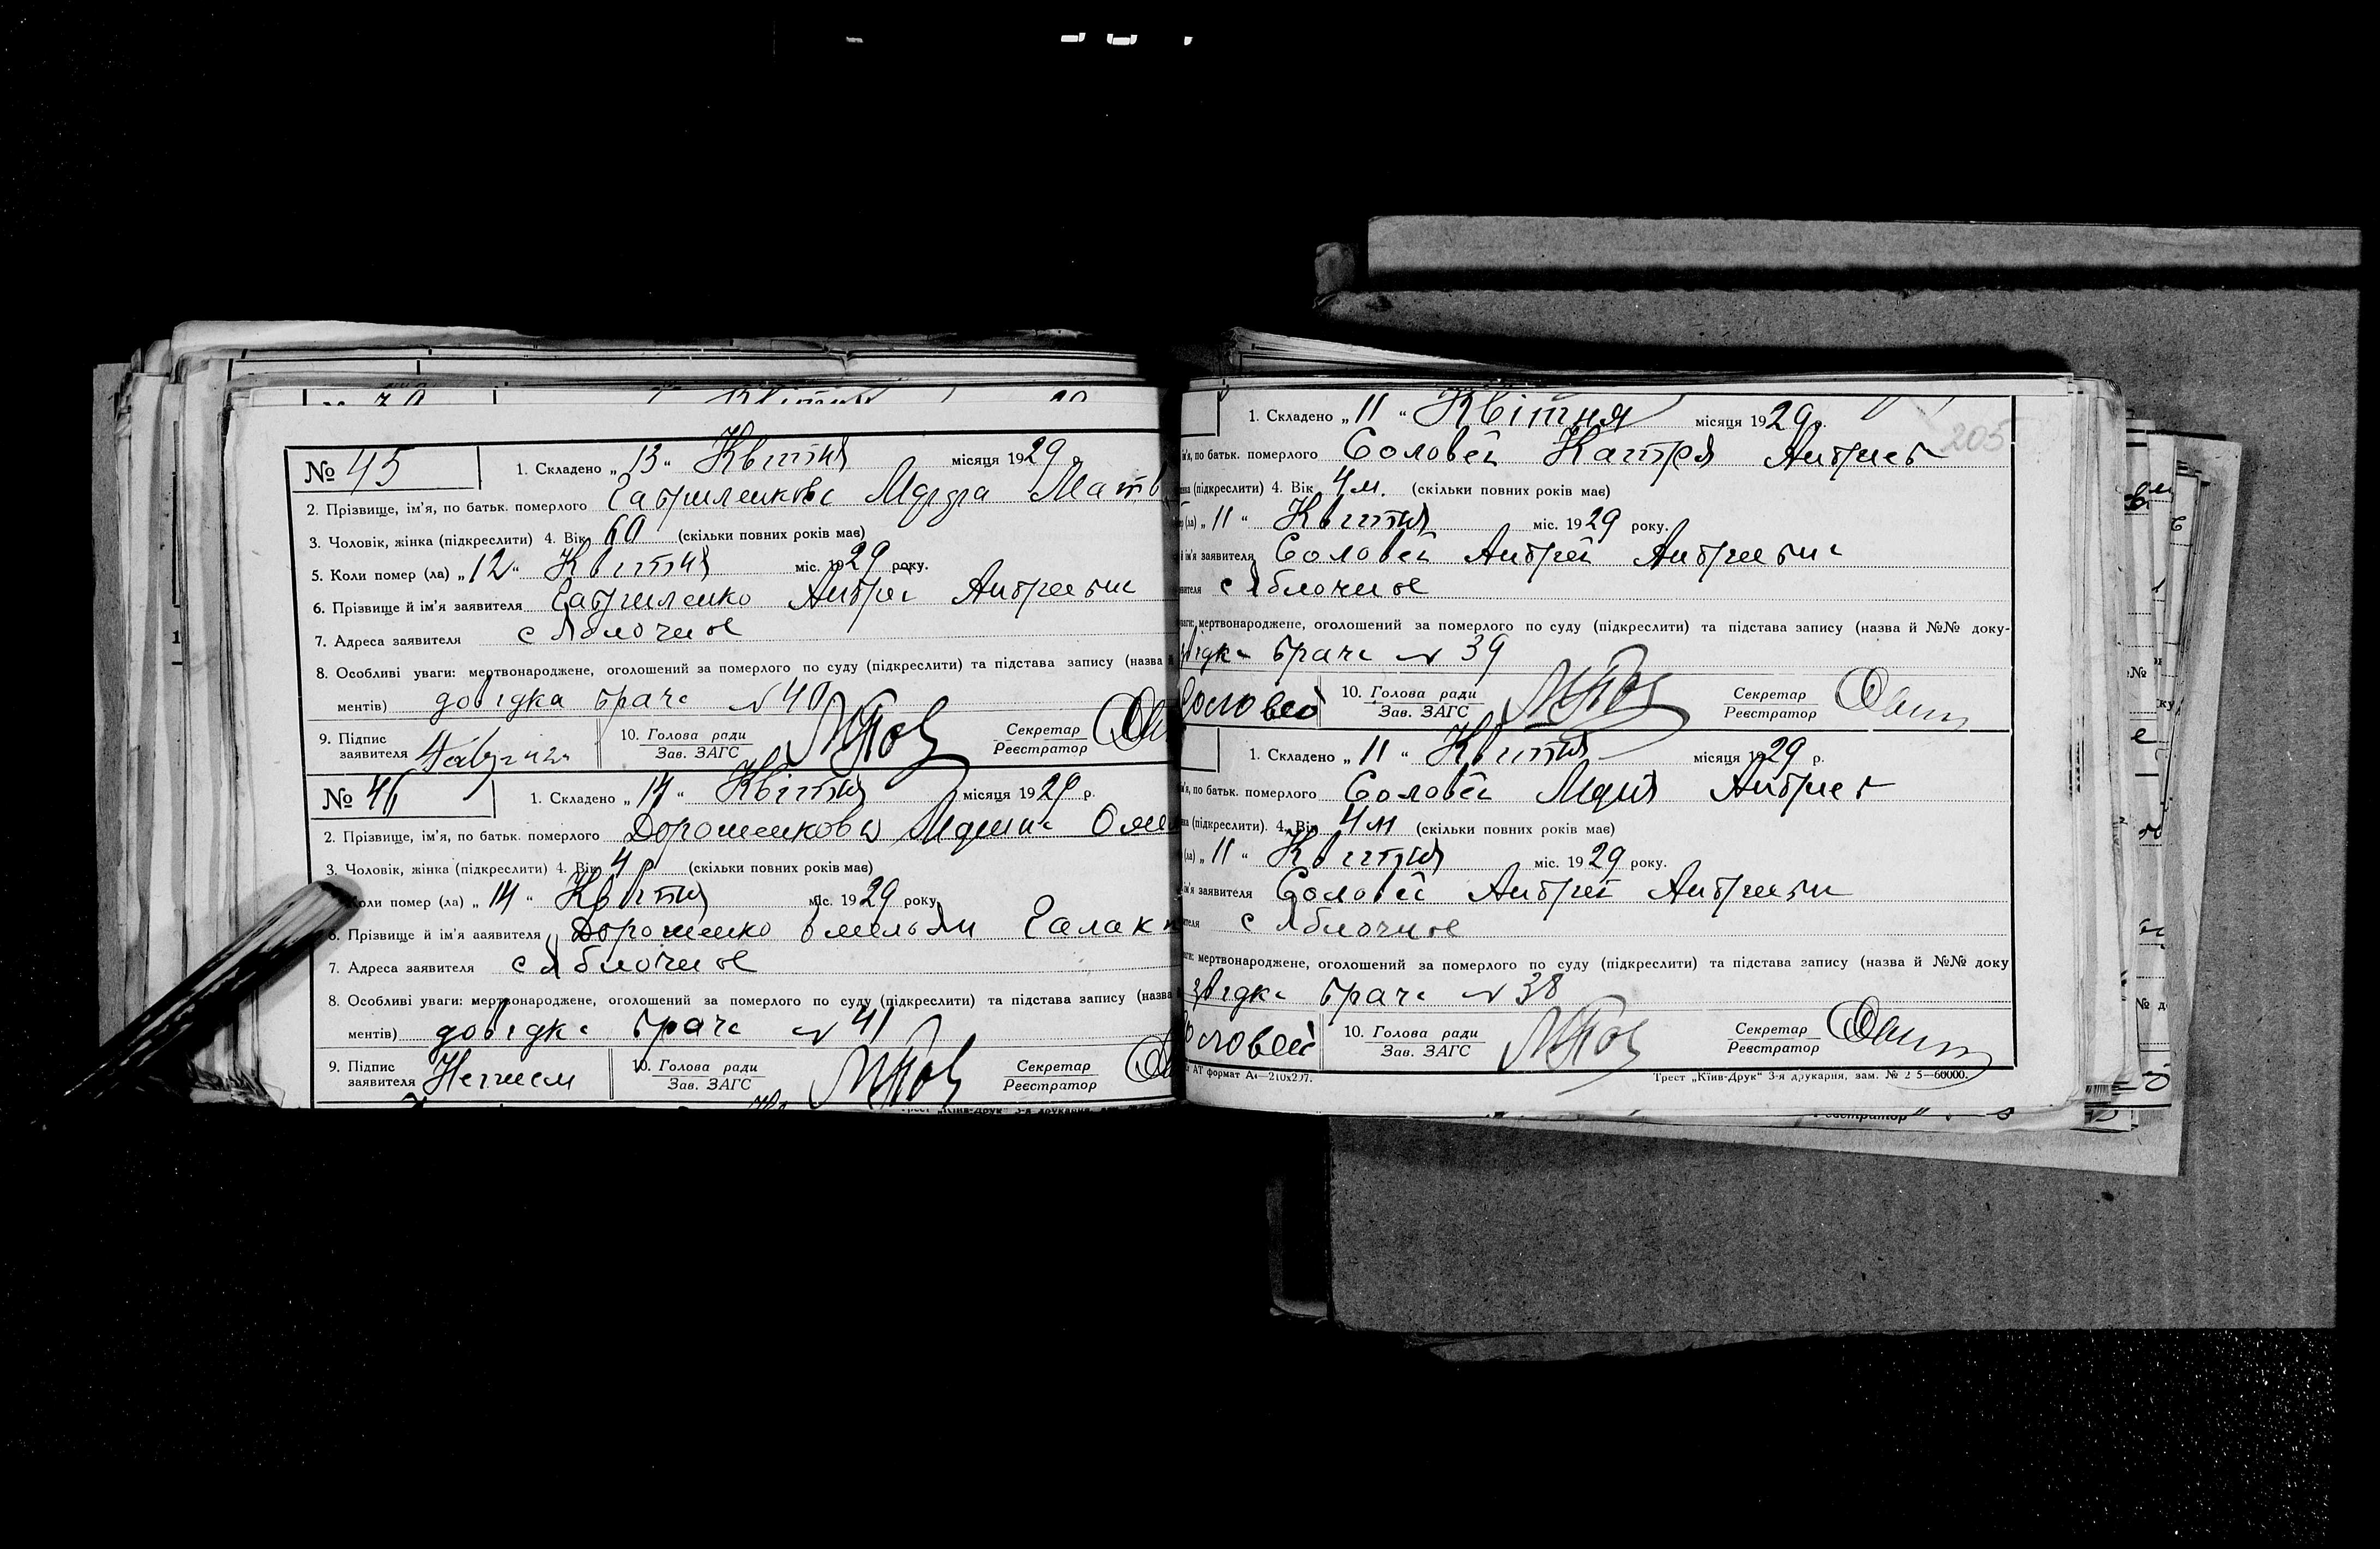 № 45
1. Складено „ 13 “ Квітня місяця 1929 р.
2. Прізвище, ім'я, по батьк. померлого Гавриленкова Мотря Матв
3. Чоловік, жінка (підкреслити) 4. Вік 60 (скільки повних років має)
5. Коли помер (ла) „ 12 “ Квітня міс. 1929 року.
6. Прізвище й ім'я заявителя Гавриленко Андрей Андреевич
7. Адреса заявителя с Яблочное
8. Особливі уваги: мертвонароджене, оголошений за померлого по суду (підкреслити) та підстава запису (назва й
ментів) довідка врача № 40
9. Підпис заявителя
10. Голова ради
Зав. ЗАГС
Секретар
Реєстратор
№ 46
1. Складено „ 14 “ Квітня місяця 1929 р.
2. Прізвище, ім'я, по батьк. померлого Дорошенкова Омел
3. Чоловік, жінка (підкреслити) 4. Вік (скільки повних років має)
Коли помер (ла) „ 14 “ Квітня міс. 1929 року
6. Прізвище й ім'я заявителя Дорошенко Омельян Галак
7. Адреса заявителя с Яблочное
8. Особливі уваги: мертвонароджене, оголошений за померлого по суду (підкреслити) та підстава запису (назва
ментів) довідка врача № 41
9. Підпис заявителя
10. Голова ради
Зав. ЗАГС
Секретар
Реєстратор
205
1. Складено „ 11 “ Квітня місяця 1929 р.
ім'я, по батьк. померлого Соловей Катря Андреев
(підкреслити) 4. Вік 4 м. (скільки повних років має)
(ла) „ 11 “ Квітня міс. 1929 року.
й ім'я заявителя Соловей Андрей Андреевич
с Яблочное
уваги: мертвонароджене, оголошений за померлого по суду (підкреслити) та підстава запису (назва й №№ доку-
відка врача № 39
Соловей
10. Голова ради
Зав. ЗАГС
Секретар
Реєстратор
1. Складено „ 11 “ Квітня місяця 1929 р.
ім'я, по батьк. померлого Соловей Мария Андреев
(підкреслити). 4. Вік 4 м (скільки повних років має)
(ла) „ 11 “ Квітня міс. 1929 року.
ім'я заявителя Соловей Андрей Андреевич
с Яблочное
мертвонароджене, оголошений за померлого по суду (підкреслити) та підстава запису (назва й №№ доку
відка врача № 38
Соловей
10. Голова ради
Зав. ЗАГС
Секретар
Реєстратор
формат А4—210х297.
Трест „Київ-Друк“ 3-я друкарня, зам. № 2 5—60000.